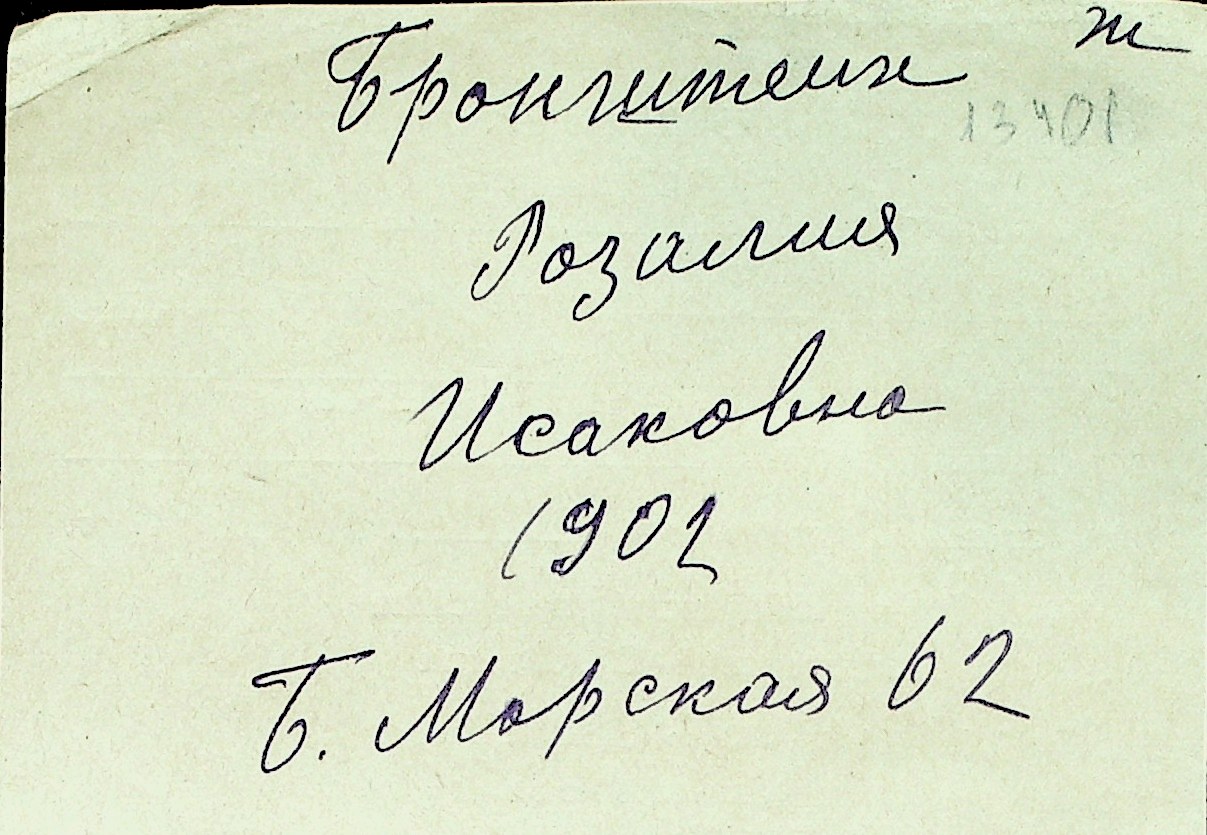 Бронштейн ж
13401
Розалия
Исаковна
1902
Б. Морская 62